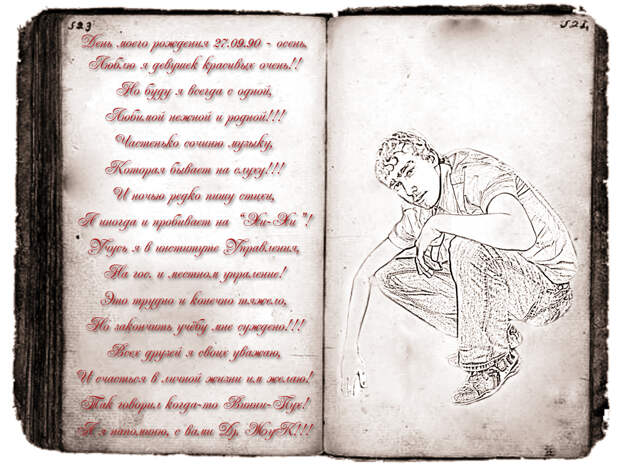 523
День моего рождения 27.09.90 - осень.
Люблю я девушек красивых очень!!
Но буду я всегда с одной,
Любимой нежной и родной!!!
Частенько сочиню музыку,
Которая бывает на слуху!!!
И ночью редко пишу стихи,
А иногда и пробивает на "Хи-Хи"!
Учусь я в институте Управления,
На гос. и местном управление!
Это трудно и конечно тяжело,
Но закончить учёбу мне суждено!!!
Всех друзей я своих уважаю,
И счастья в личной жизни им желаю!
Так говорил когда-то Винни-Пух!
А я напомню, с вами Dj ЖуК!!!